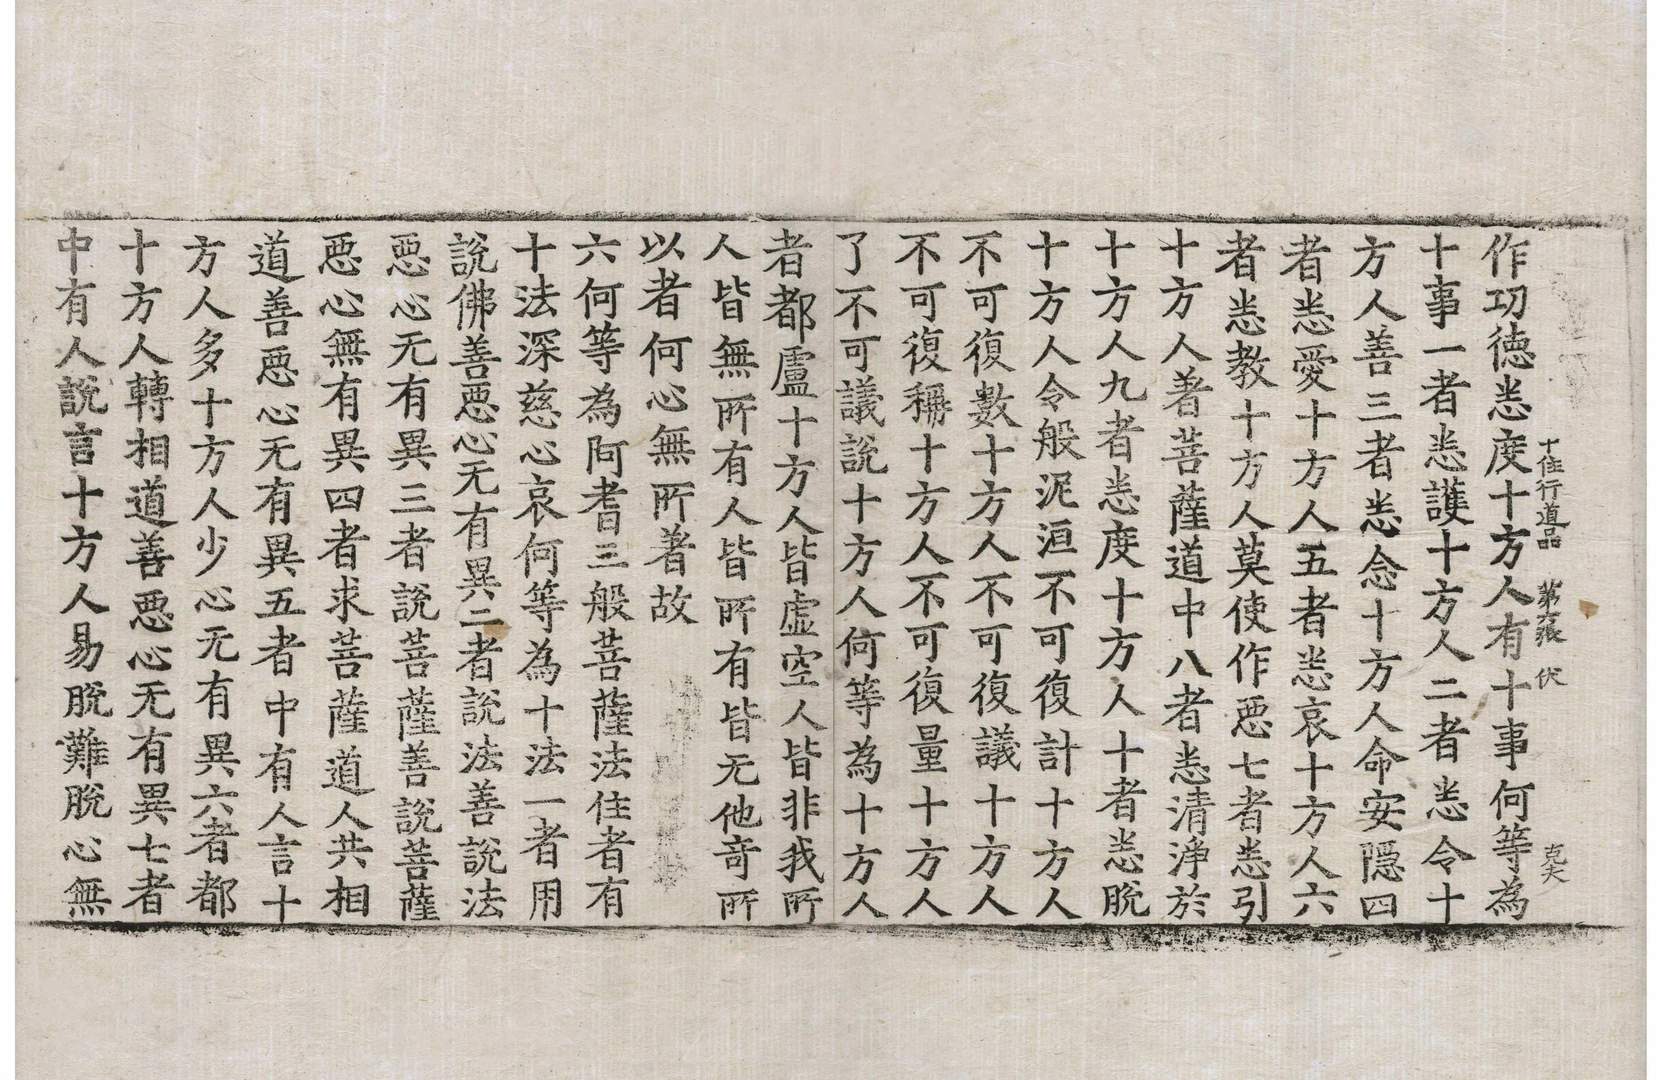 十住行道品 第六張 伏 克夫
作功德悉度十方人有十事何等為
十事一者悉護十方人二者悉令十
方人善三者悉念十方人命安隱四
者悉愛十方人五者悉哀十方人六
者悉教十方人莫使作惡七者悉引
十方人著菩薩道中八者悉清淨於
十方人九者悉度十方人十者悉脫
十方人令般泥洹不可復計十方人
不可復數十方人不可復議十方人
不可復稱十方人不可復量十方人
了不可議說十方人何等為十方人
者都盧十方人皆虛空人皆非我所
人皆無所有人皆所有皆无他奇所
以者何心無所著故
六何等為阿耆三般菩薩法住者有
十法深慈心哀何等為十法一者用
說佛善惡心无有異二者說法善說法
惡心无有異三者說菩薩善說菩薩
惡心無有異四者求菩薩道人共相
道善惡心无有異五者中有人言十
方人多十方人少心无有異六者都
十方人轉相道善惡心无有異七者
中有人說言十方人易脫難脫心無